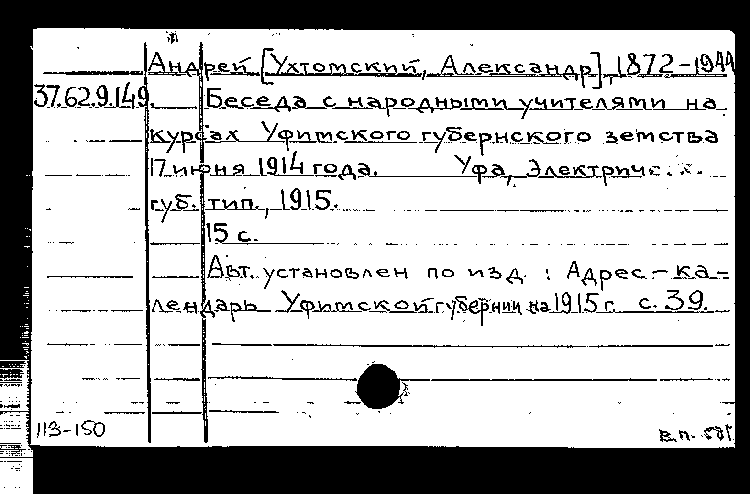 Андрей [Ухтомский, Александр], 1872-1944
37.62.9.149. Беседа с народными учителями на
курсах Уфимского губернского земства
17 июня 1914 года. Уфа, Электрич.
губ. тип., 1915.
15 с.
Авт. установлен по изд.: Адрес-ка-
лендарь Уфимской губернии на 1915 г. с. 39.
113-150 в.п.